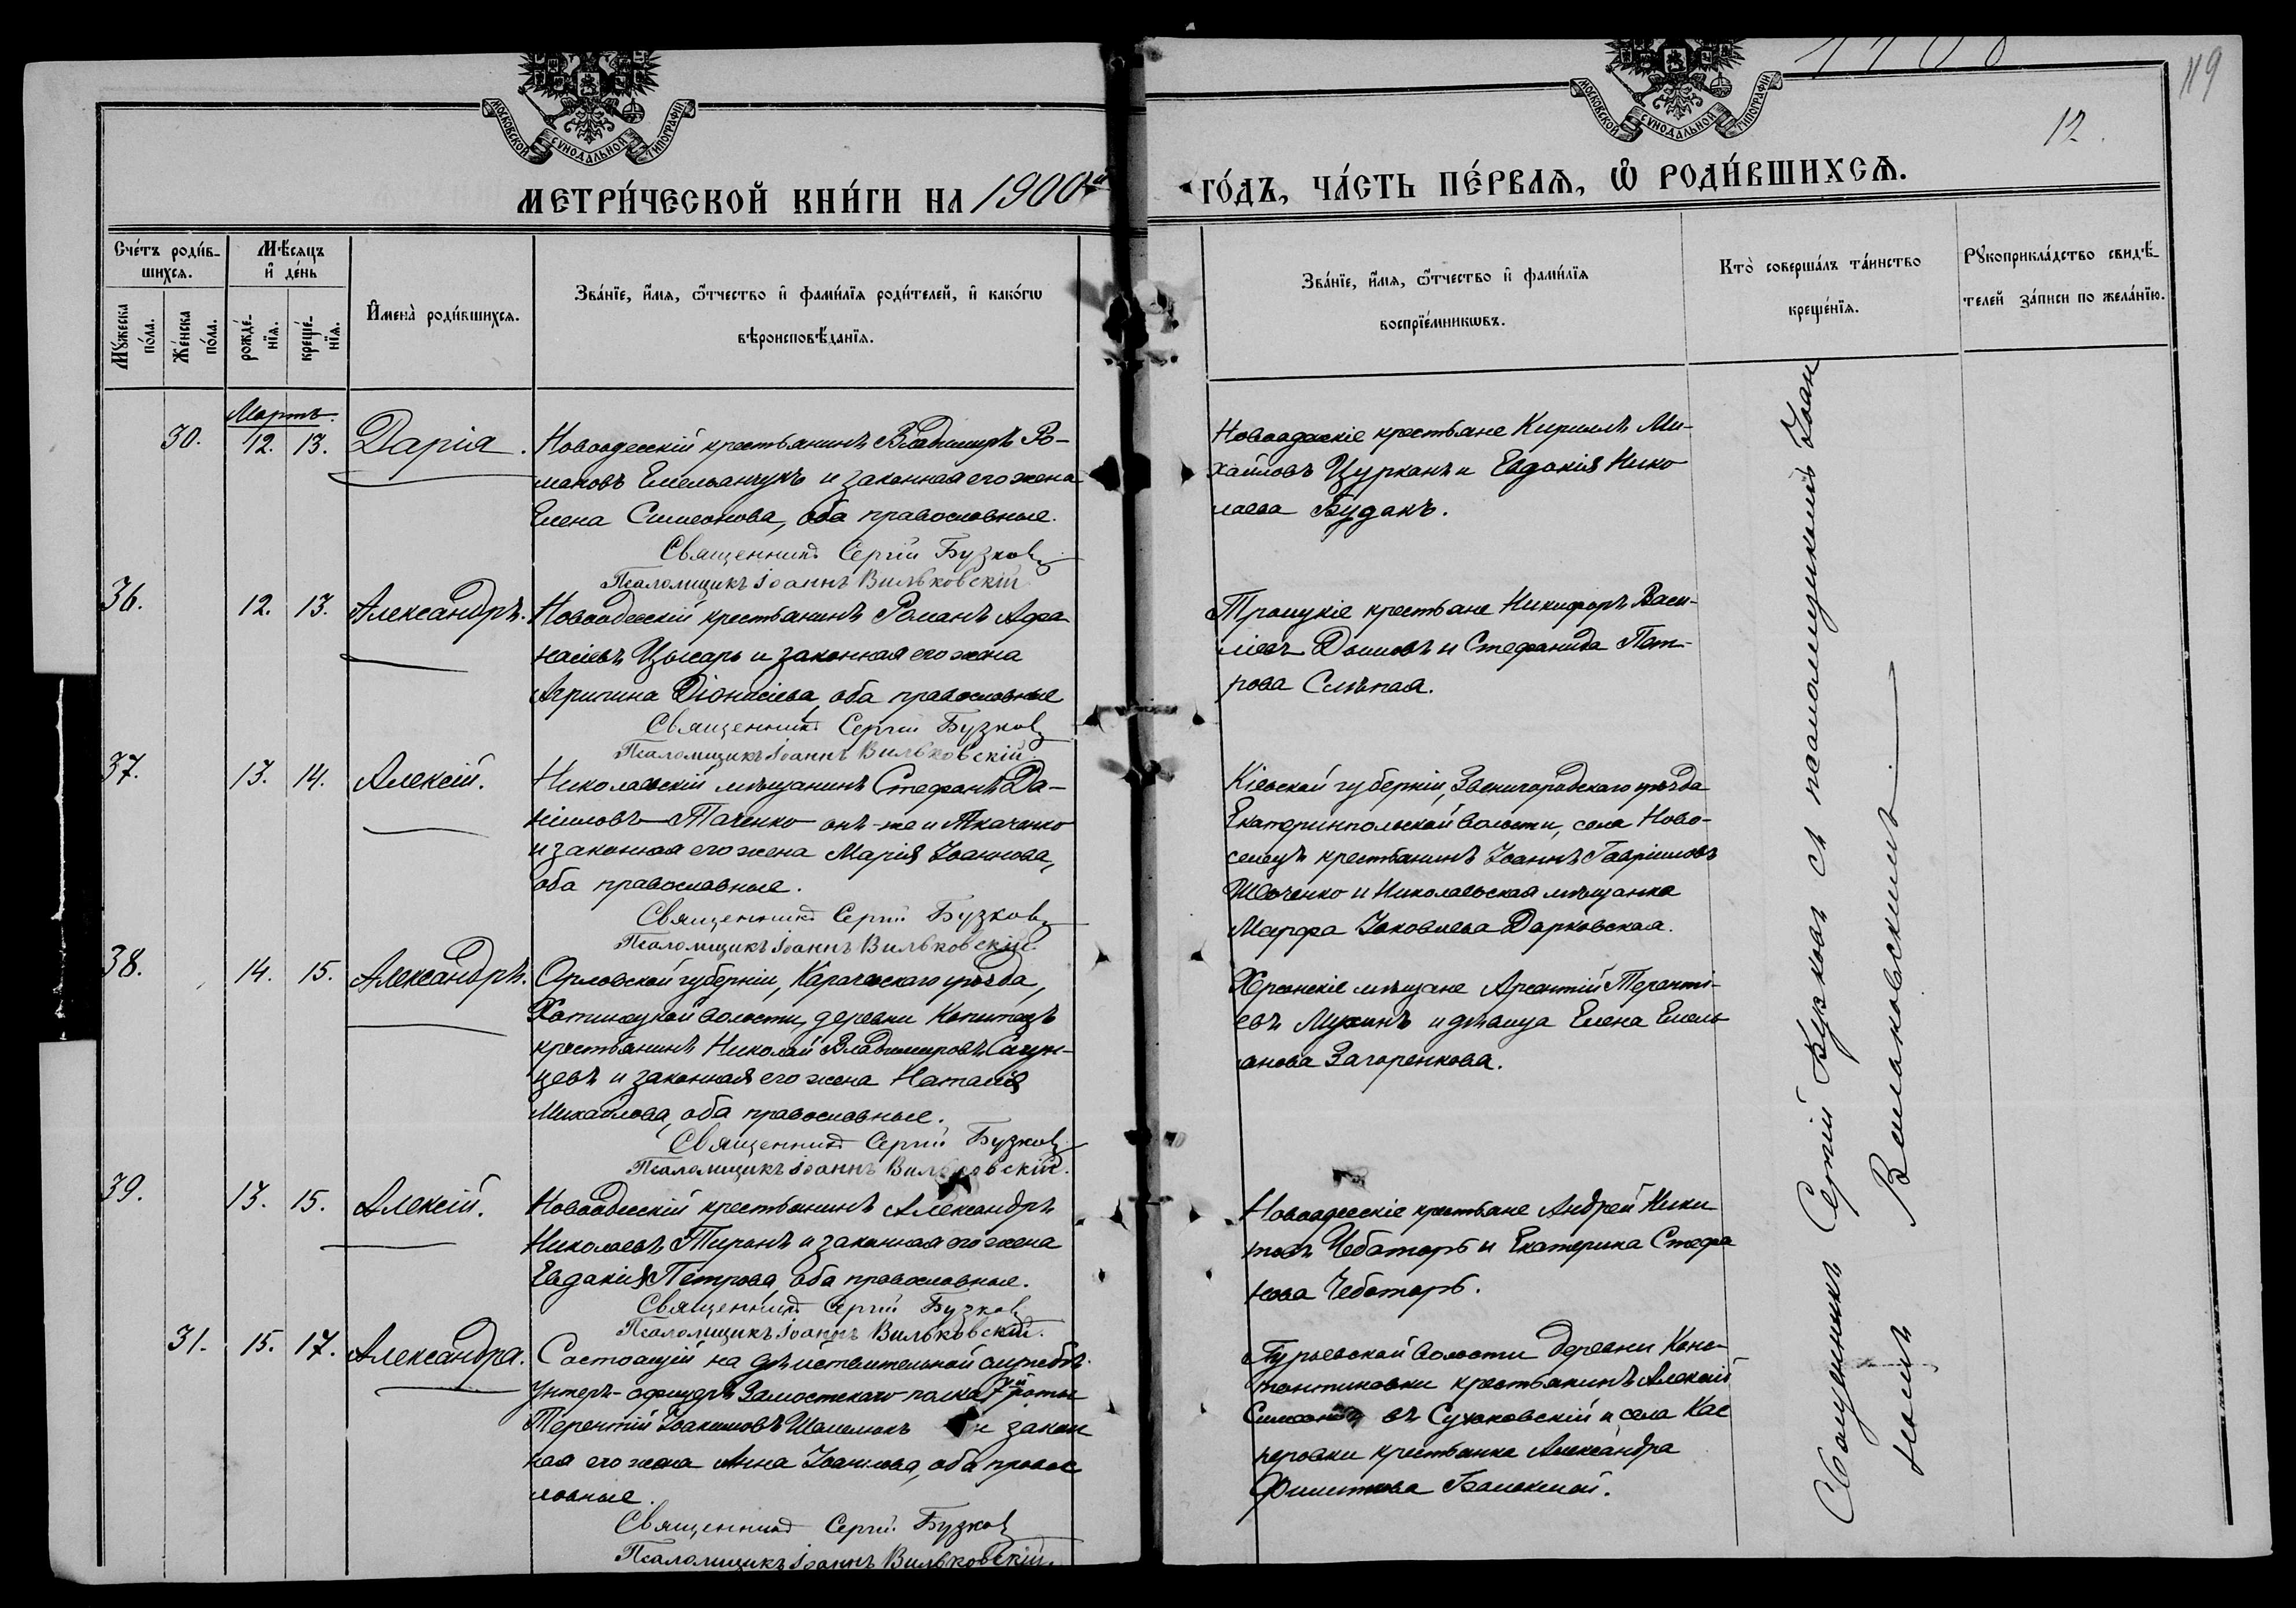 119
12.
МОСКОВСКОЙ СѴНОДАЛЬНОЙ ТИПОГРАФІИ
МОСКОВСКОЙ СѴНОДАЛЬНОЙ ТИПОГРАФІИ
МЕТРИ́ЧЕСКОЙ КНИ́ГИ НА 1900й
ГО́ДЪ, ЧА́СТЬ ПЕ́РВАѦ, Ѡ҆ РОДИ́ВШИХСѦ.
Сче́тъ роди́в-
шихсѧ.
Мѣ́сѧцъ
и҆ де́нь
Мꙋ́жеска
по́ла.
Же́нска
по́ла.
рожде́-
нїѧ.
креще́-
нїѧ.
И҆мена̀ роди́вшихсѧ.
Зва́нїе, и҆́мѧ, ѻ҆́тчество и҆ фами́лїѧ роди́телей, и҆ како́гѡ
вѣроисповѣ́данїѧ.
Зва́нїе, и҆́мѧ, ѻ҆́тчество и҆ фами́лїѧ
воспрїе́мникѡвъ.
Кто̀ соверша́лъ та́инство
креще́нїѧ.
Рꙋкоприкла́дство свидѣ́-
телей за́писи по жела́нїю.
Мартъ.
30. 12. 13. Дарія.
Новоодесскій крестьянинъ Владимиръ Ро-
мановъ Емельянчукъ и законная его жена
Елена Симеонова, оба православные.
Священникъ Сергій Бузковъ
Псаломщикъ Іоаннъ Вильковскій
Новоодесскіе крестьяне Кириллъ Ми-
хаиловъ Цурканъ и Евдокія Нико
лаева Будакъ.
36. 12. 13. Александръ.
Новоодесскій крестьянинъ Романъ Афа
насіевъ Цысарь и законная его жена
Агрипина Діонисіева, оба православные
Священникъ Сергій Бузковъ
Псаломщикъ Іоаннъ Вильковскій
Троицкіе крестьяне Никифоръ Васи-
ліевъ и Стефанида Пет-
рова Слѣпая.
37. 13. 14. Алексій.
Николаевскій мѣщанинъ Стефанъ Да-
ніиловъ Таченко онъ-же и Ткаченко
и законная его жена Марія Іоаннова,
оба православные.
Священникъ Сергій Бузковъ
Псаломщикъ Іоаннъ Вильковскій
Кіевской губерніи, Звенигородскаго уѣзда
Екатеринпольской волости, села Ново-
селецъ крестьянинъ Іоаннъ Гавріиловъ
Шевченко и Николаевская мѣщанка
Марфа Іаковлева Дарковская.
38. 14. 15. Александръ.
Орловской губерніи, Карачевскаго уѣзда,
волости, деревни
крестьянинъ Николай Владимировъ
цевъ и законная его жена Наталія
Михаилова, оба православные.
Священникъ Сергій Бузковъ
Псаломщикъ Іоаннъ Вильковскій.
Херсонскіе мѣщане Арсентій Теренті-
евъ Мухинъ и дѣвица Елена Емель
анова Загоренкова.
39. 13. 15. Алексій.
Новоодесскій крестьянинъ Александръ
Николаевъ Тиронъ и законная его жена
Евдокія Петрова, оба православные.
Священникъ Сергій Бузковъ
Псаломщикъ Іоаннъ Вильковскій.
Новоодесскіе крестьяне Андрей Ники
товъ Чеботарь и Екатерина Стефа
нова Чеботарь.
31. 15. 17. Александра.
Состоящій на дѣйствительной службѣ
Унтеръ-офицеръ Замостскаго полка 7й роты
Терентій Іоакимовъ и закон
ная его жена Анна Іоаннова, оба правос
лавные.
Священникъ Сергій Бузковъ
Псаломщикъ Іоаннъ Вильковскій.
Гурьевской волости деревни Конс-
тантиновки крестьянинъ Алексій
Симеоновъ Сухаковскій и села Кас
перовки крестьянка Александра
Филиппова
Священникъ Сергій Бузковъ съ псаломщикомъ Іоан
номъ Вильковскимъ.